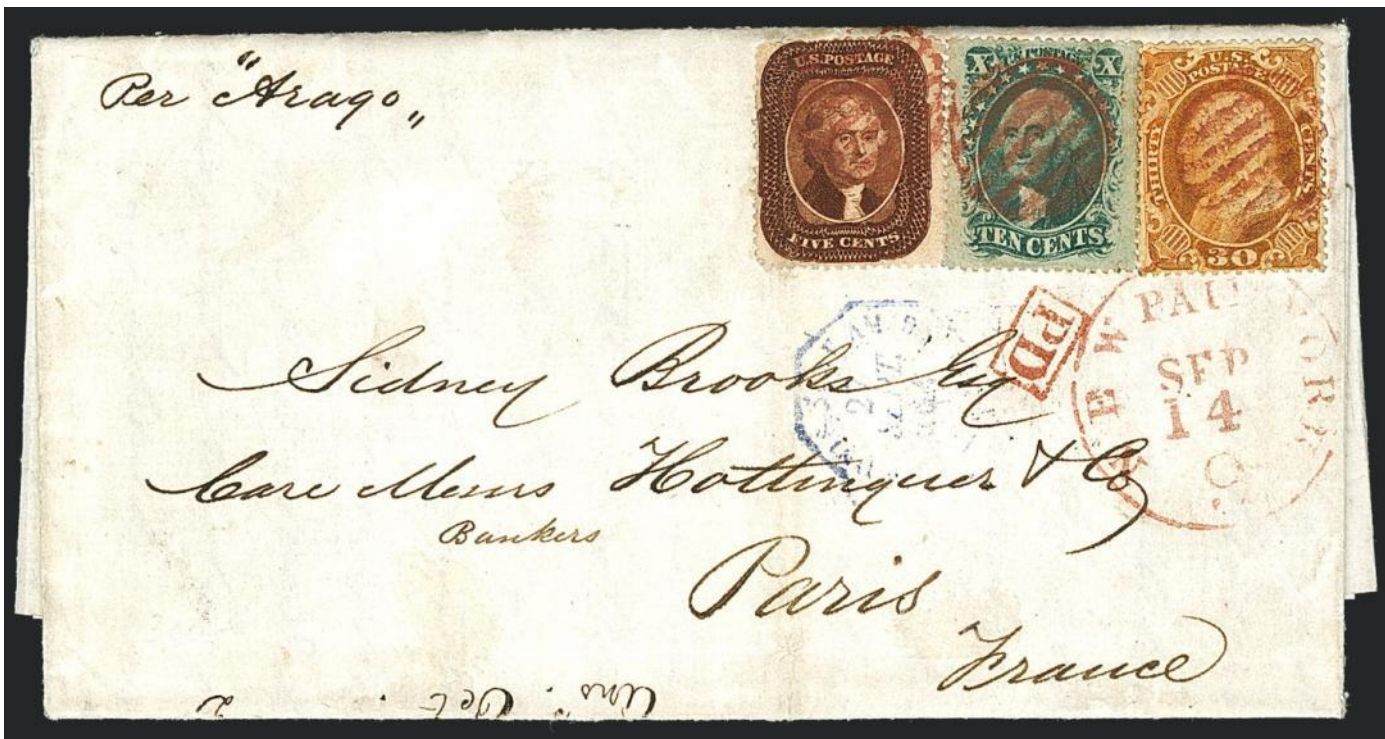 Per "Arago"
U.S. POSTAGE
FIVE CENTS
X U.S. POSTAGE X
TEN CENTS
U.S. POSTAGE
THIRTY CENTS
30
PD
NEW YORK
PAID
SEP
14
Sidney Brooks Esq
Care Messrs Hottinguer & Co
Bankers
Paris
France
Ans. Oct. 2